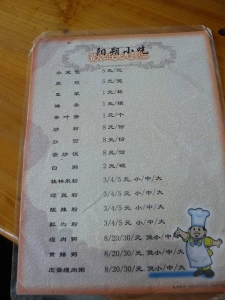 阳朔小吃
小笼包 5元/笼
豆浆 1元/杯
油条 1元/根
茶叶蛋 1元/个
炒粉 8元/份
炒面 8元/份
蛋炒饭 8元/份
白粥 2元/碗
桂林米粉 3/4/5元 小/中/大
螺蛳粉 3/4/5元 小/中/大
酸辣粉 3/4/5元 小/中/大
粉 3/4/5元 小/中/大
瘦肉粥 8/20/30/元 煲小/中/大
黄鳝粥 8/20/30/元 煲小/中/大
皮蛋瘦肉粥 8/20/30/元 煲小/中/大